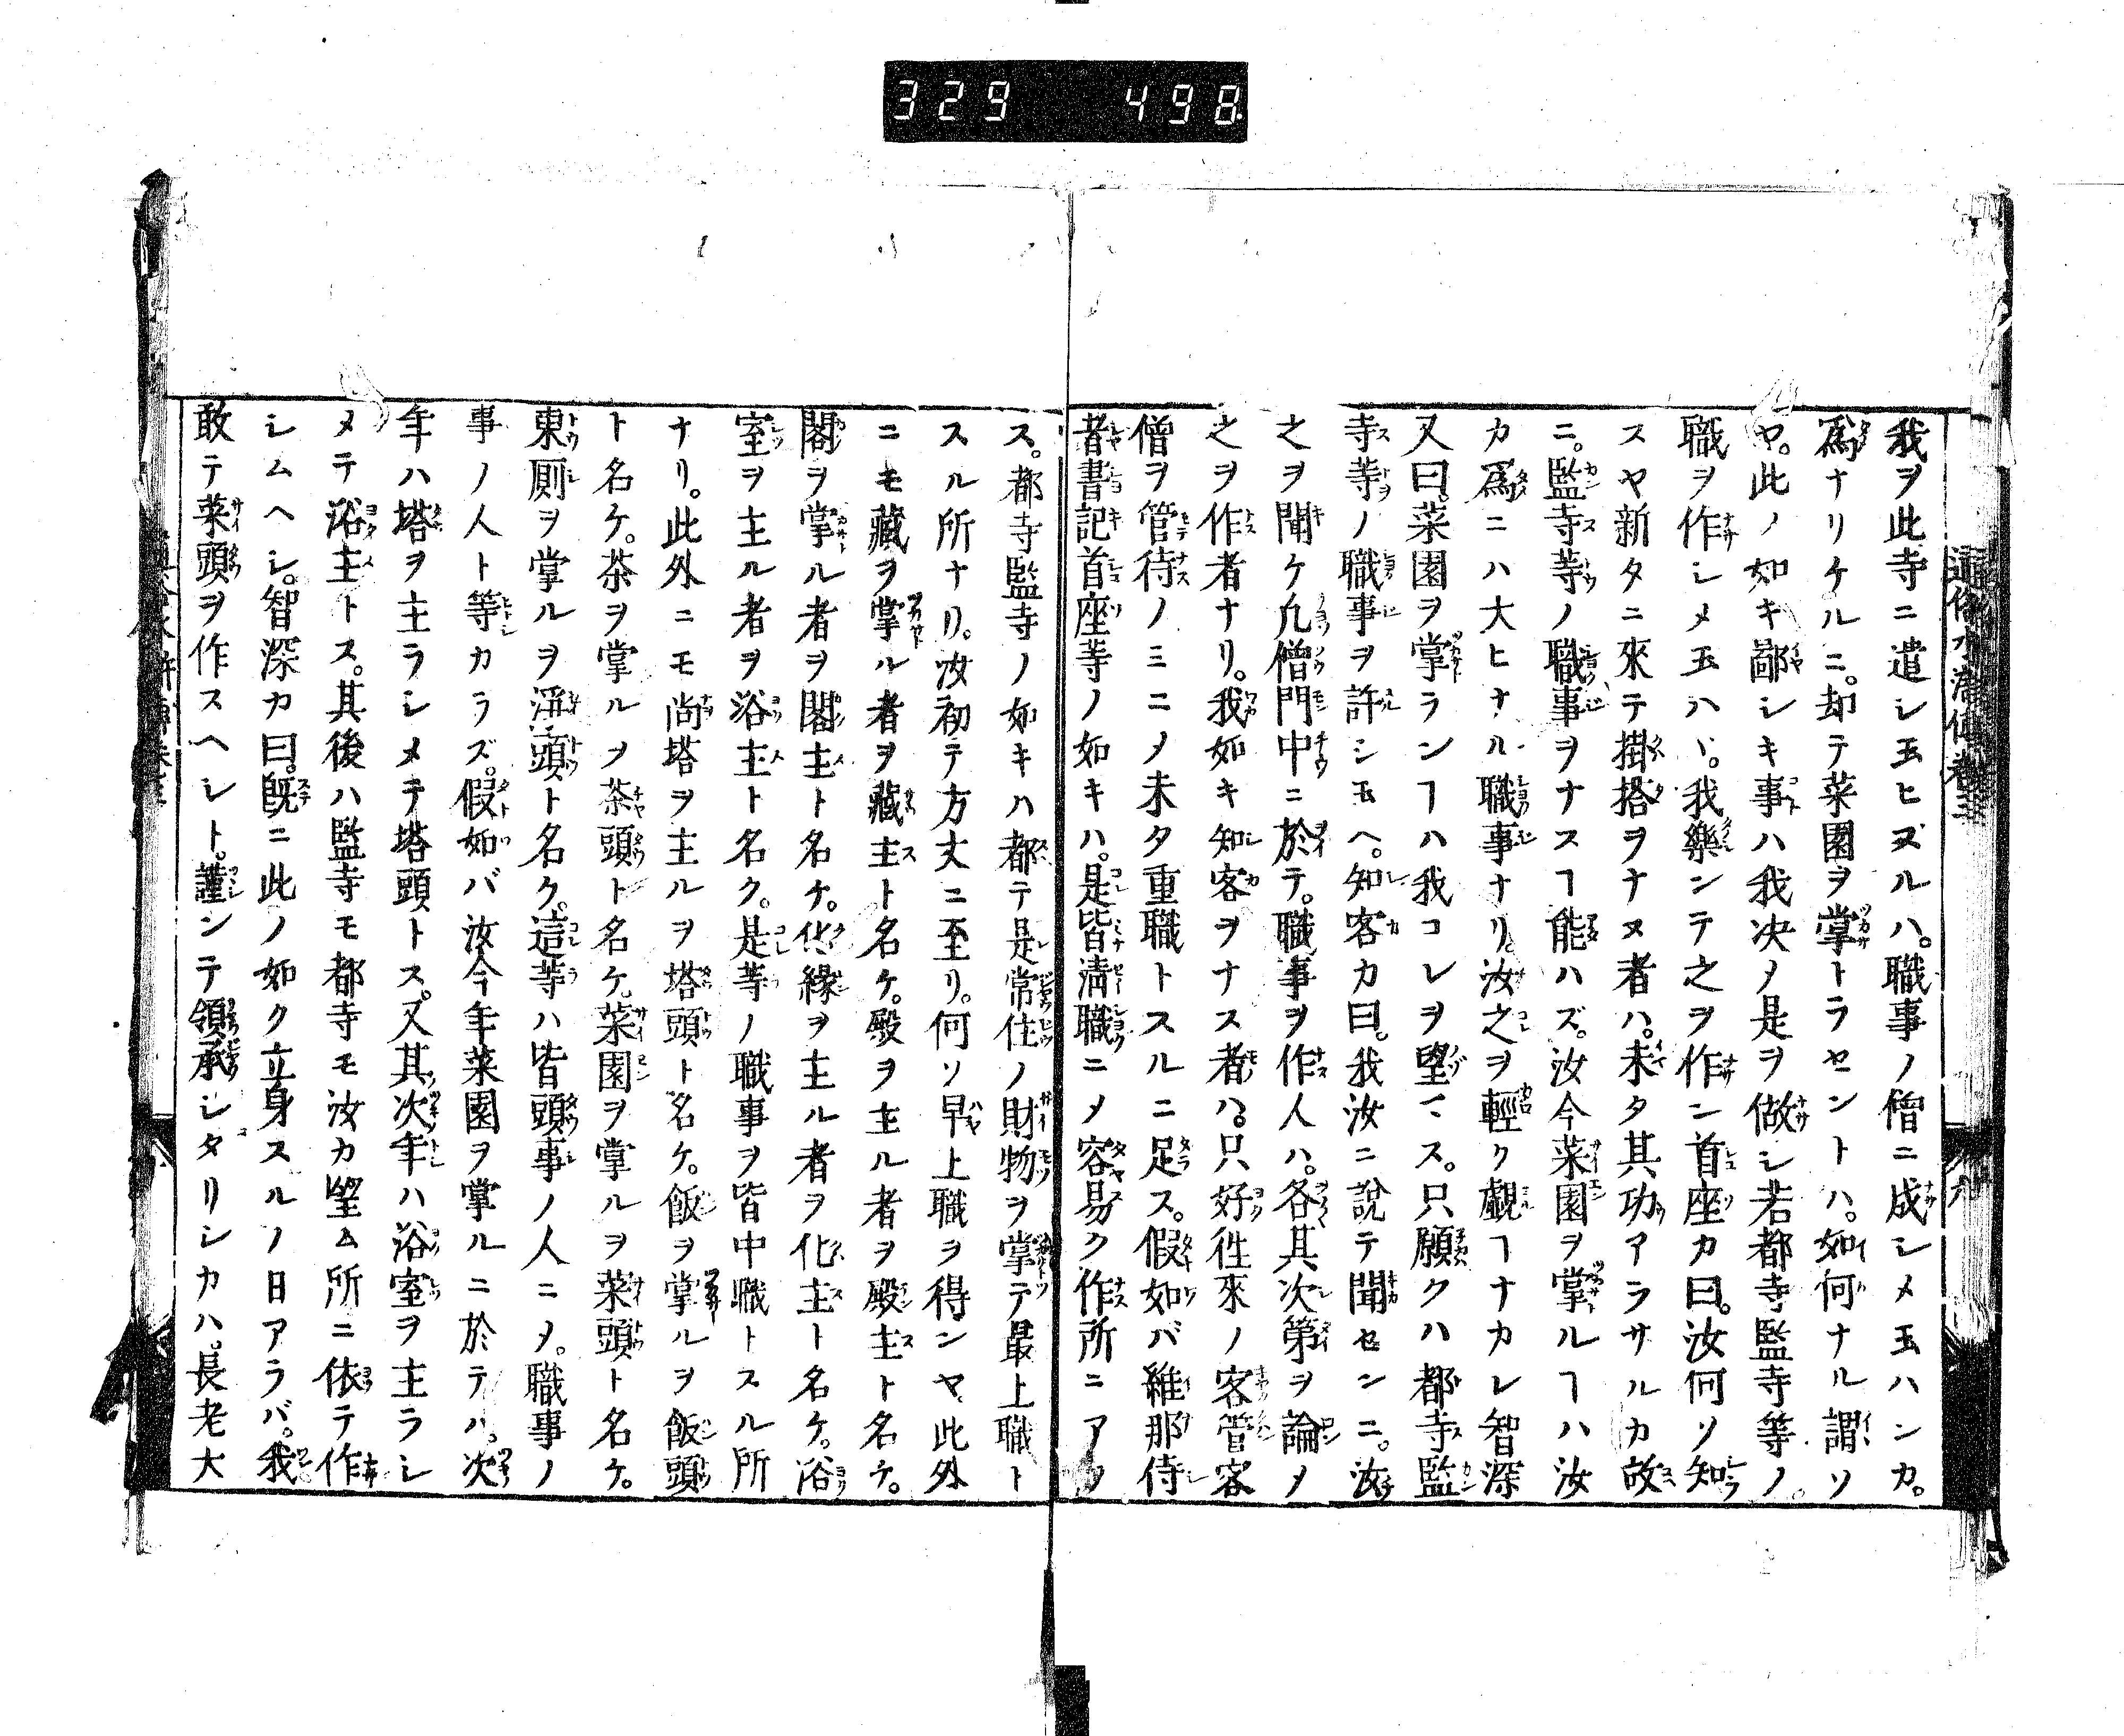 329 498
通俗水滸傳卷之三
我ヲ此寺ニ遣シ玉ヒヌルハ。職事ノ僧ニ成シメ玉ハンカ。
爲ナリケルニ。却テ菜園ヲ掌トラセントハ。如何ナル謂ソ
ヤ。此ノ如キ鄙シキ事ハ我决ノ是ヲ做シ若都寺監寺等ノ。
職ヲ作シメ玉ハヾ。我樂ンテ之ヲ作ン首座カ曰。汝何ソ知
スヤ新タニ來テ掛搭ヲナヌ者ハ。未タ其功アラサルカ故
ニ。監寺等ノ職事ヲナスヿ能ハズ。汝今菜園ヲ掌ルヿハ汝
カ爲ニハ大ヒナル職事ナリ。汝之ヲ輕ク覷ヿナカレ智深
又曰。菜園ヲ掌ランヿハ我コレヲ望マス。只願クハ都寺監
寺等ノ職事ヲ許シ玉ヘ。知客カ曰。我汝ニ說テ聞センニ。汝
之ヲ聞ケ凡僧門中ニ於テ。職事ヲ作人ハ。各其次第ヲ論メ
之ヲ作者ナリ。我如キ知客ヲナス者ハ。只好徃來ノ客管客
僧ヲ管待ノミニメ未タ重職トスルニ足ス。假如バ維那侍
者書記首座等ノ如キハ。是皆淸職ニメ容易ク作所ニアラ
ス。都寺監寺ノ如キハ都テ是常住ノ財物ヲ掌テ最上職ト
スル所ナリ。汝初テ方丈ニ至リ。何ソ早上職ヲ得ンヤ此外
ニモ藏ヲ掌ル者ヲ藏主ト名ケ。殿ヲ主ル者ヲ殿主ト名ケ。
閣ヲ掌ル者ヲ閣主ト名ケ。化緣ヲ主ル者ヲ化主ト名ケ。浴
室ヲ主ル者ヲ浴主ト名ク。是等ノ職事ヲ皆中職トスル所
ナリ。此外ニモ尚塔ヲ主ルヲ塔頭ト名ケ。飯ヲ掌ルヲ飯頭
ト名ケ。茶ヲ掌ルヲ茶頭ト名ケ。菜園ヲ掌ルヲ菜頭ト名ケ。
東厠ヲ掌ルヲ淨頭ト名ク。這等ハ皆頭事ノ人ニメ。職事ノ
事ノ人ト等カラズ。假如バ汝今年菜園ヲ掌ルニ於テハ。次
年ハ塔ヲ主ラシメテ塔頭トス。又其次年ハ浴室ヲ主ラシ
メテ浴主トス。其後ハ監寺モ都寺モ汝カ望ム所ニ依テ作
シムヘシ。智深カ曰。旣ニ此ノ如ク立身スルノ日アラバ。我
敢テ菜頭ヲ作スヘシト。謹ンテ領承シタリシカハ。長老大